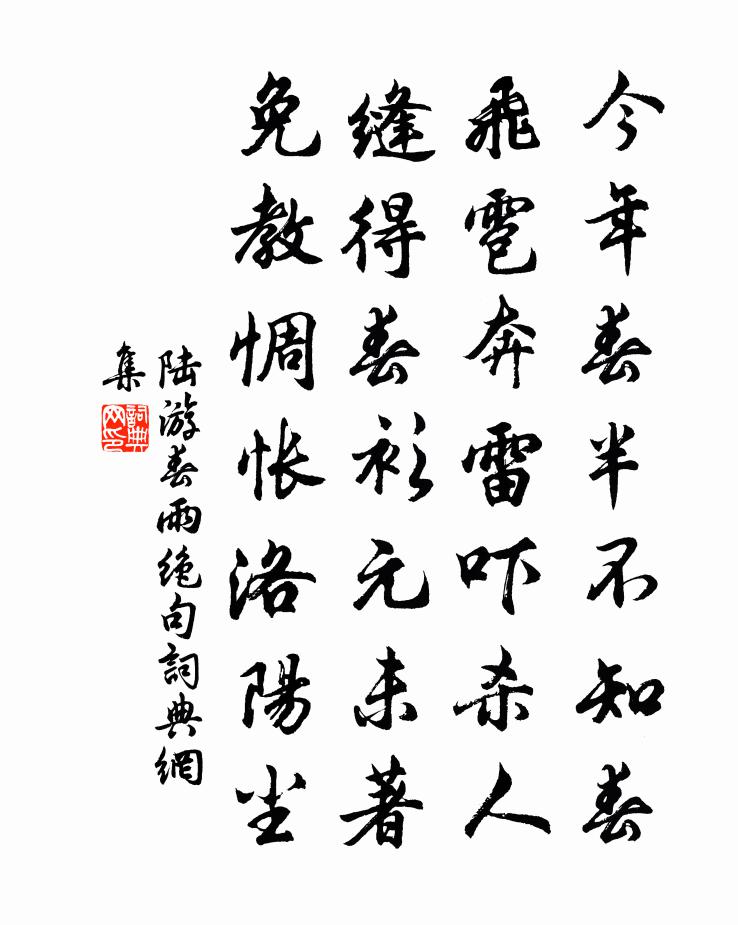 今年春半不知春
飛雹奔雷吓杀人
縫得春衫元未著
免教惆怅洛陽尘
陆游春雨绝句詞典網
集
詞典
网印